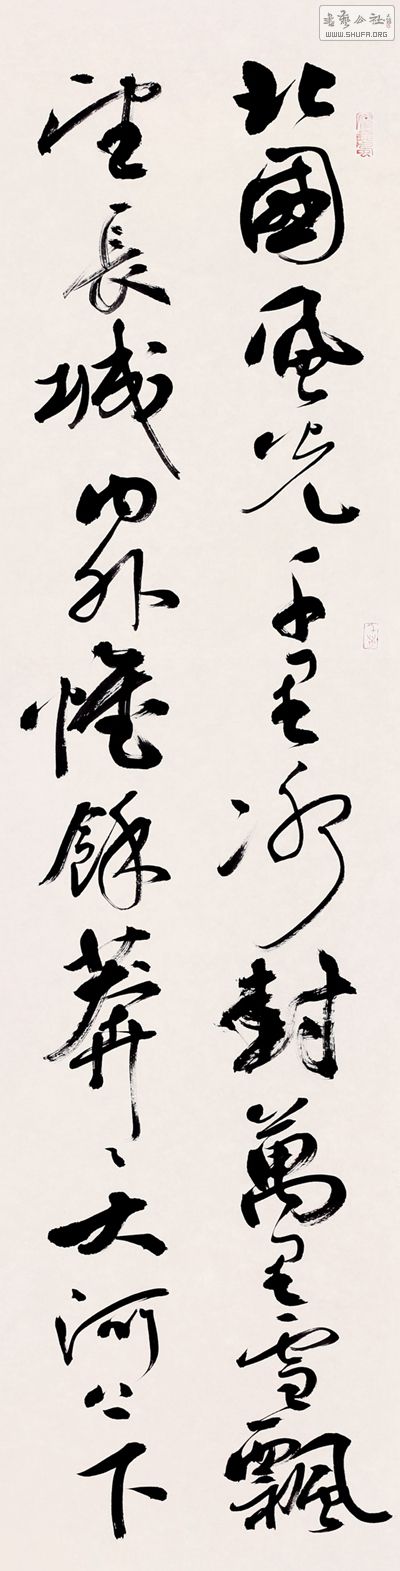 書藝公社
WWW.SHUFA.ORG
北國風光千里冰封萬里雪飄
望長城内外惟餘莽〻大河上下